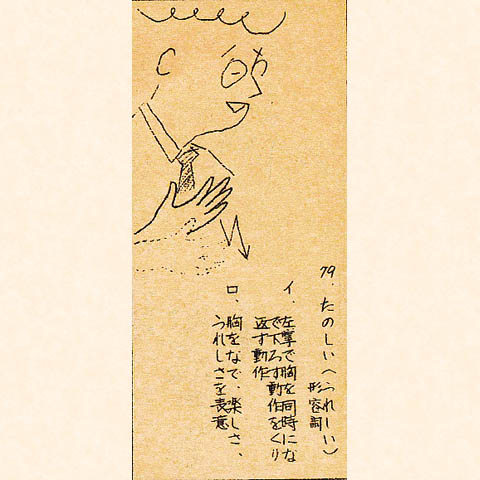 79. たのしい(うれしい)
形容詞
イ. 左掌で胸を同時にな
で下ろす動作をくり
返す動作
ロ. 胸をなで、楽しさ、
うれしさを表意